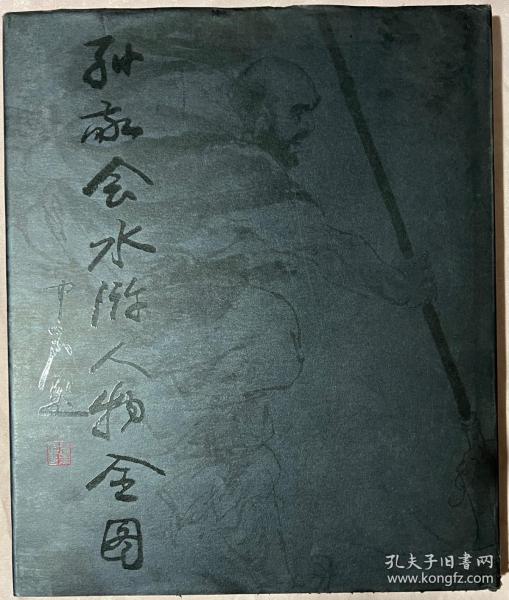 孙敬会水浒人物全图
孔夫子旧书网
www.kongfz.com